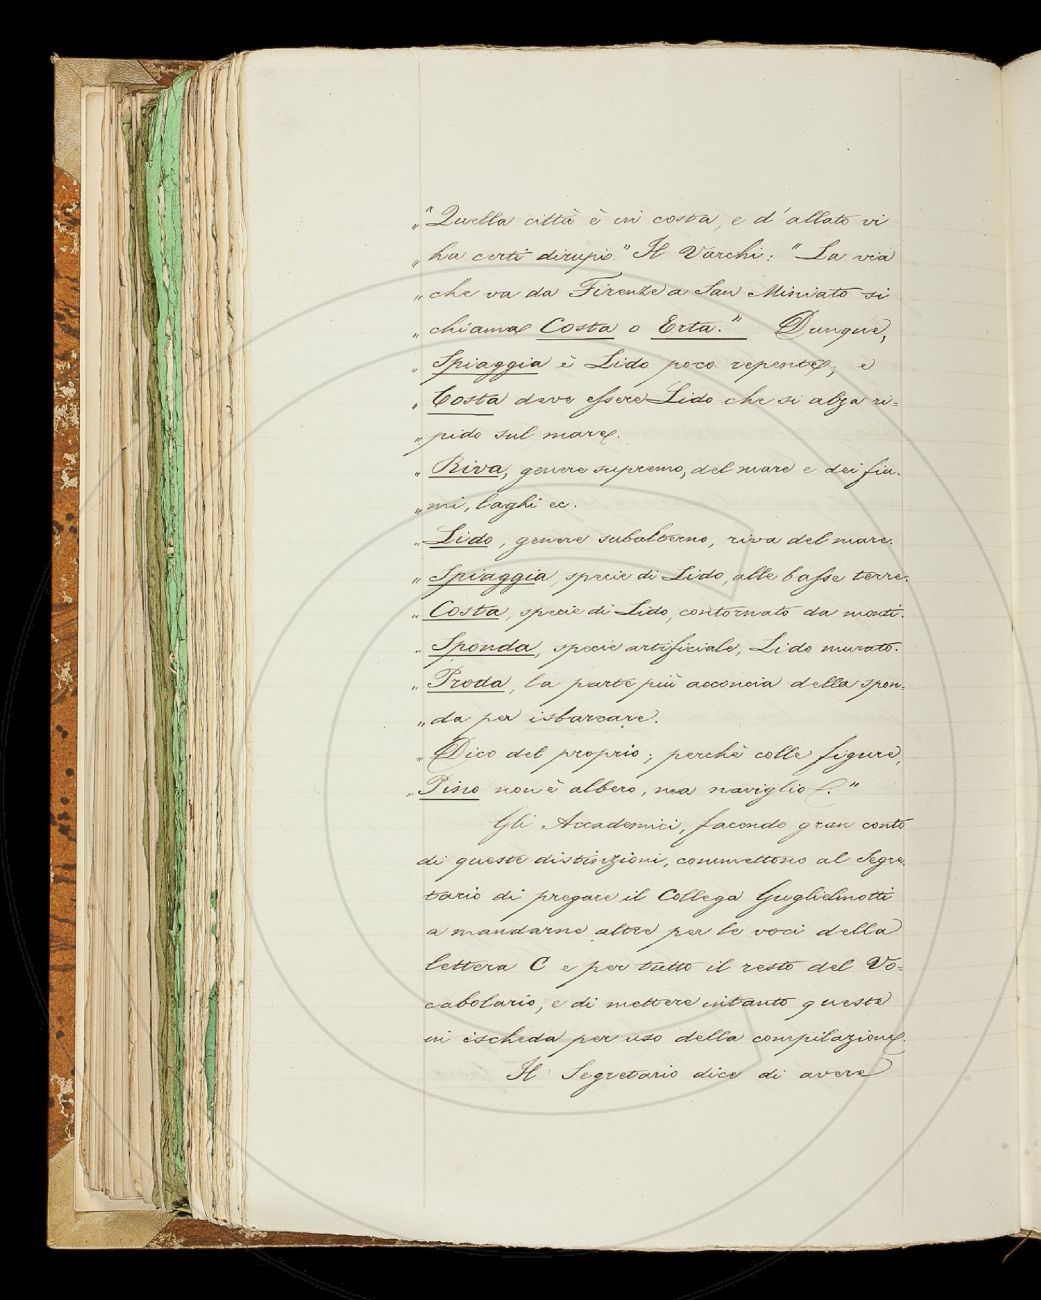 „ "Quella città è in costa, e d'allato vi
„ ha certi dirupi." Il Varchi: "La via
„ che va da Firenze a San Miniato si
„ chiama Costa o Erta." Dunque,
„ Spiaggia è Lido poco repente; e
„ Costa deve essere Lido che si alza ri=
„ pido sul mare.
„ Riva, genere supremo, del mare e dei fiu-
„ mi, laghi ec.
„ Lido, genere subalterno, riva del mare.
„ Spiaggia, specie di Lido, alle basse terre.
„ Costa, specie di Lido, contornato da monti.
„ Sponda, specie artificiale, Lido murato.
„ Proda, la parte più acconcia della spon-
„ da per isbarcare.
„ Dico del proprio; perchè colle figure,
„ Pino non è albero, ma naviglio."
Gli Accademici, facendo gran conto
di queste distinzioni, commettono al Segre-
tario di pregare il Collega Guglielmotti
a mandarne altre per le voci della
lettera C e per tutto il resto del Vo=
cabolario, e di mettere intanto queste
in ischeda per uso della compilazione.
Il Segretario dice di avere